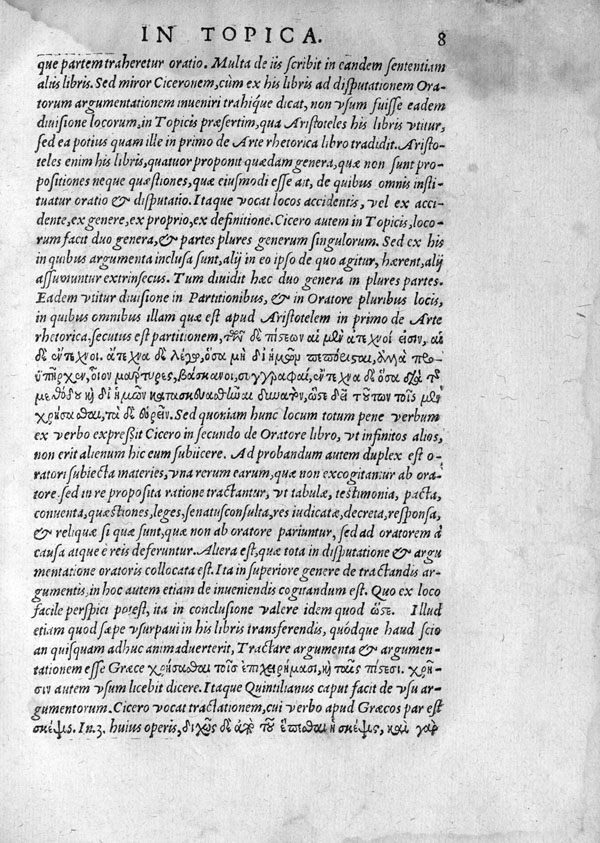 IN TOPICA. 8
que partem traheretur oratio. Multa de iis scribit in eandem sententiam
aliis libris. Sed miror Ciceronem, cùm ex his libris ad disputationem Ora-
torum argumentationem inueniri trahíque dicat, non vsum fuisse eadem
diuisione locorum, in Topicis præsertim, qua Aristoteles his libris vtitur,
sed ea potius quam ille in primo de Arte rhetorica libro tradidit. Aristo-
teles enim his libris, quatuor proponit quædam genera, quæ non sunt pro-
positiones neque quæstiones, quæ eiusmodi esse ait, de quibus omnis insti-
tuatur oratio & disputatio. Itaque vocat locos accidentis, vel ex acci-
dente, ex genere, ex proprio, ex definitione. Cicero autem in Topicis, loco-
rum facit duo genera, & partes plures generum singulorum. Sed ex his
in quibus argumenta inclusa sunt, alij in eo ipso de quo agitur, hærent, alij
assumuntur extrinsecus. Tum diuidit hæc duo genera in plures partes.
Eadem vtitur diuisione in Partitionibus, & in Oratore pluribus locis,
in quibus omnibus illam quæ est apud Aristotelem in primo de Arte
rhetorica, secutus est partitionem, τῶν δὲ πίστεων αἱ μὲν ἄτεχνοί εἰσιν, αἱ
δὲ ἔντεχνοι. ἄτεχνα δὲ λέγω, ὅσα μὴ δι ἡμῶν πεπόρισται, ἀλλὰ προ-
ϋπῆρχεν, οἷον μάρτυρες, βάσκανοι, συγγραφαί, ἔντεχνα δὲ ὅσα διὰ τ
μεθόδου καὶ δι ἡμῶν κατασκευασθῆναι δυνατόν, ὥστε δεῖ τούτων τοῖς μὲν
χρήσασθαι, τὰ δὲ εὑρεῖν. Sed quoniam hunc locum totum pene verbum
ex verbo expreßit Cicero in secundo de Oratore libro, vt infinitos alios,
non erit alienum hic eum subiicere. Ad probandum autem duplex est o-
ratori subiecta materies, vna rerum earum, quæ non excogitantur ab ora-
tore, sed in re proposita ratione tractantur, vt tabulæ, testimonia, pacta,
conuenta, quæstiones, leges, senatusconsulta, res iudicatæ, decreta, responsa,
& reliquæ si quæ sunt, quæ non ab oratore pariuntur, sed ad oratorem à
causa atque è reis deferuntur. Altera est, quæ tota in disputatione & argu
mentatione oratoris collocata est. Ita in superiore genere de tractandis ar-
gumentis, in hoc autem etiam de inueniendis cogitandum est. Quo ex loco
facile perspici potest, ita in conclusione valere idem quod ὥστε. Illud
etiam quod sæpe vsurpaui in his libris transferendis, quódque haud scio
an quisquam adhuc animaduerterit, Tractare argumenta & argumen-
tationem esse Græce χρήσασθαι τοῖς ἐπιχειρήμασι, καὶ ταῖς πίστεσι. χρῆ-
σιν autem vsum licebit dicere. Itaque Quintilianus caput facit de vsu ar-
gumentorum. Cicero vocat tractationem, cui verbo apud Græcos par est
σκέψις. In. 3. huius operis, διχῶς δὲ ἀπὸ τοῦ ἕπεσθαι ἡ σκέψις, καὶ γὰρ